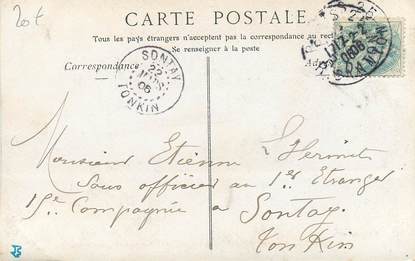 20t
CARTE POSTALE.
Tous les pays étrangers n'acceptent pas la correspondance au rect
Se renseigner à la poste
Correspondance
Ad
SONTAY
22
MAI
06
TONKIN
Monsieur Etienne L'hermite
Sous officier au 1er Etranger
15e Compagnie a Sontay
Tonkin